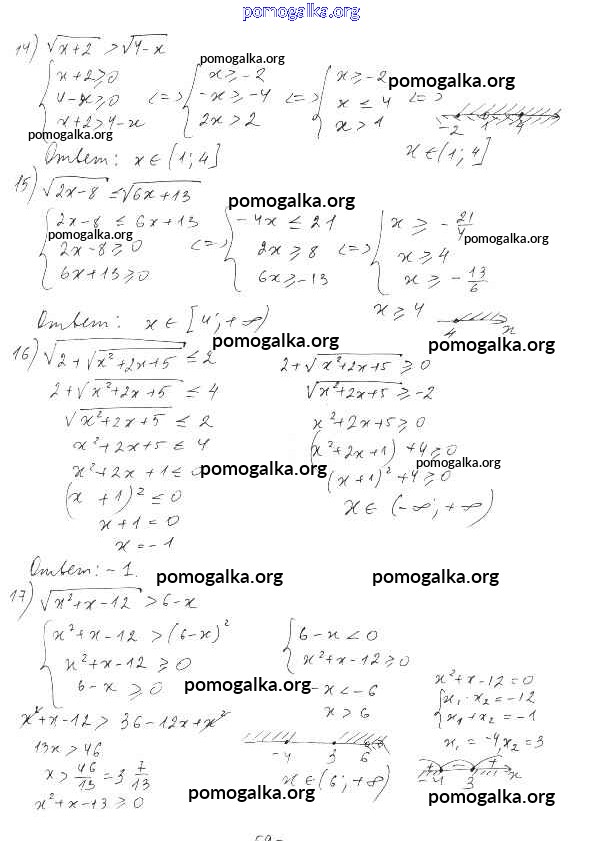 pomogalka.org
14) √(x+2) > √(4-x)
{ x+2≥0 4-x≥0 x+2>4-x <=> { x≥-2 -x≥-4 2x>2 <=> { x≥-2 x≤4 x>1 <=> -2 1 4
pomogalka.org pomogalka.org
pomogalka.org
Ответ: x∈(1;4] x∈(1;4]
15) √(2x-8) ≤ √(6x+13)
pomogalka.org
{ 2x-8 ≤ 6x+13 2x-8≥0 6x+13≥0 <=> { -4x ≤ 21 2x≥8 6x≥-13 <=> { x≥-21/4 x≥4 x≥-13/6
pomogalka.org pomogalka.org
x≥4
4 x
Ответ: x∈[4;+∞)
pomogalka.org pomogalka.org
16) √(2+√(x²+2x+5)) ≤ 2 2+√(x²+2x+5) ≥ 0
2+√(x²+2x+5) ≤ 4 √(x²+2x+5) ≥ -2
√(x²+2x+5) ≤ 2 x²+2x+5≥0
x²+2x+5≤4 (x²+2x+1)+4≥0
x²+2x+1≤0 (x+1)²+4≥0
pomogalka.org pomogalka.org
(x+1)²≤0 x∈(-∞;+∞)
x+1=0
x=-1
Ответ: -1.
pomogalka.org pomogalka.org
17) √(x²+x-12) > 6-x
{ x²+x-12 > (6-x)² x²+x-12≥0 6-x≥0 { 6-x<0 x²+x-12≥0
pomogalka.org
-x<-6 x²+x-12=0
x>6 { x₁·x₂=-12 x₁+x₂=-1
x²+x-12 > 36-12x+x² x₁=-4, x₂=3
13x>46 -4 3 6
x>46/13=3 7/13 x∈(6;+∞) + - + -4 3 x
x²+x-13≥0
pomogalka.org pomogalka.org